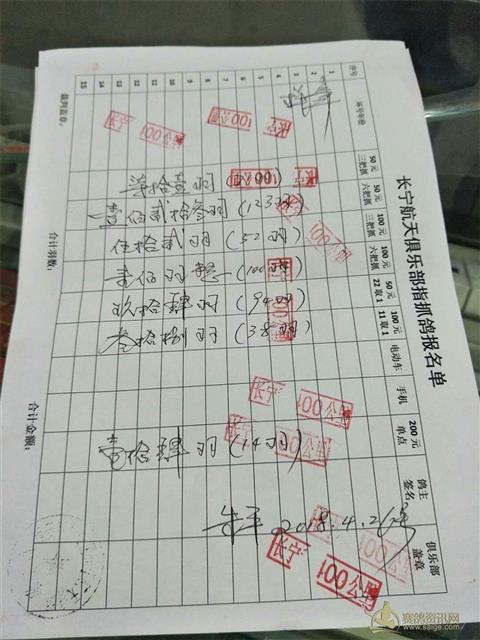 长宁航天俱乐部指抓鸽报名单
序号 环号年份 50元三把抓 50元六把抓 100元三把抓 100元六把抓 50元22取1 100元11取1 电动车 手机 200元单点 鸽主签名 俱乐部盖章
1
2
3
4
5
6
7
8
9
10
11
12
13
14
15
拾 羽
壹佰贰拾叁羽(123羽)
伍拾贰羽(52羽)
壹佰羽整(100羽)
玖拾肆羽(94羽)
叁拾捌羽(38羽)
壹拾肆羽(14羽)
2018.4.26号
长宁 100公里
长宁 100公里
100公里
长宁
100公里
长宁 100公里
长宁 100公里
100公里
长宁 100公里
裁判盖章: 合计羽数: 合计金额:
赛鸽资讯网
www.saige.com